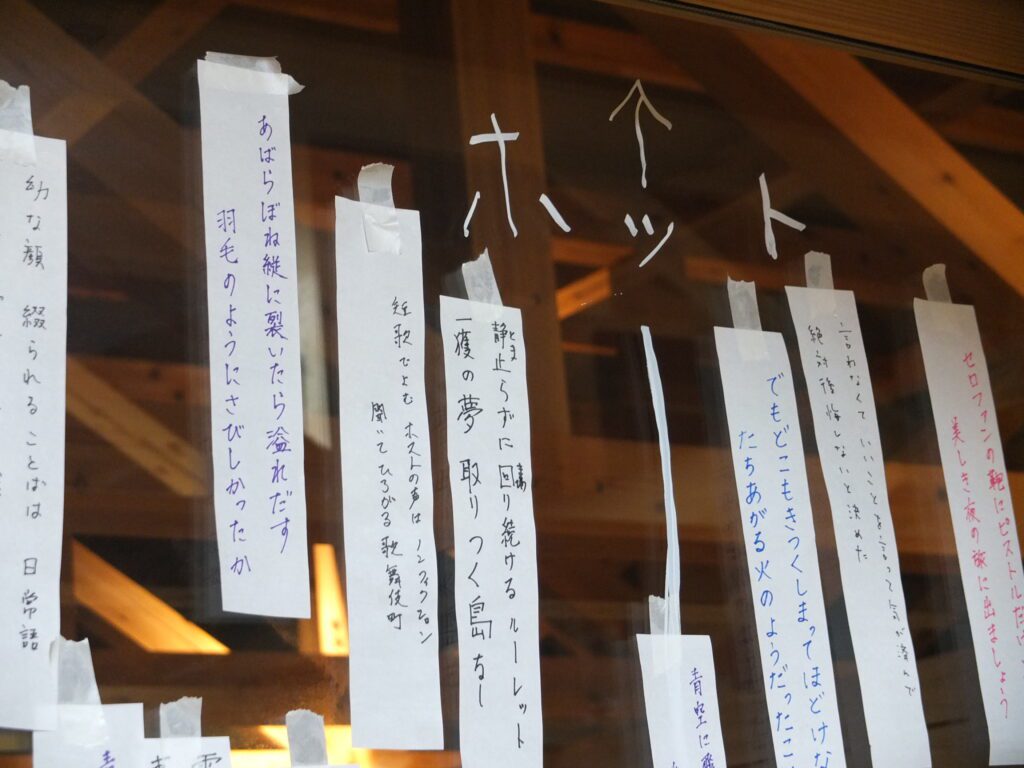 ↑
ホット
セロファンの鞄にピストルだけ
美しき夜の旅に出ましょう
言わなくていいことを言って気が済んで
絶対後悔しないと決めた
でもどこもきつくしまってほどけな
たちあがる火のようだったこ
青空に飛
静止らずに回り続ける ルーレット
とま
一獲の夢 取りつく島なし
短歌でよむ ホストの声は ノンフィクション
聞いてひろがる 歌舞伎町
あばらぼね縦に裂いたら溢れだす
羽毛のようにさびしかったか
幼な顔 綴られることばは 日常語